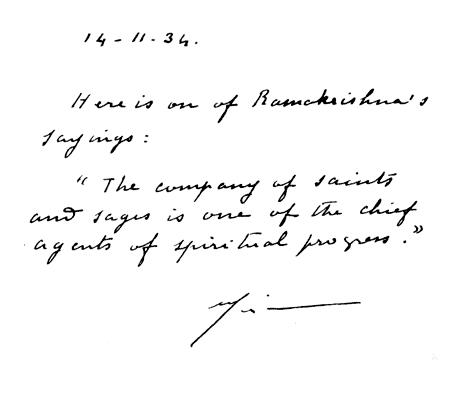 14-11-34.
Here is on of Ramakrishna's
sayings:
"The company of saints
and sages is one of the chief
agents of spiritual progress."